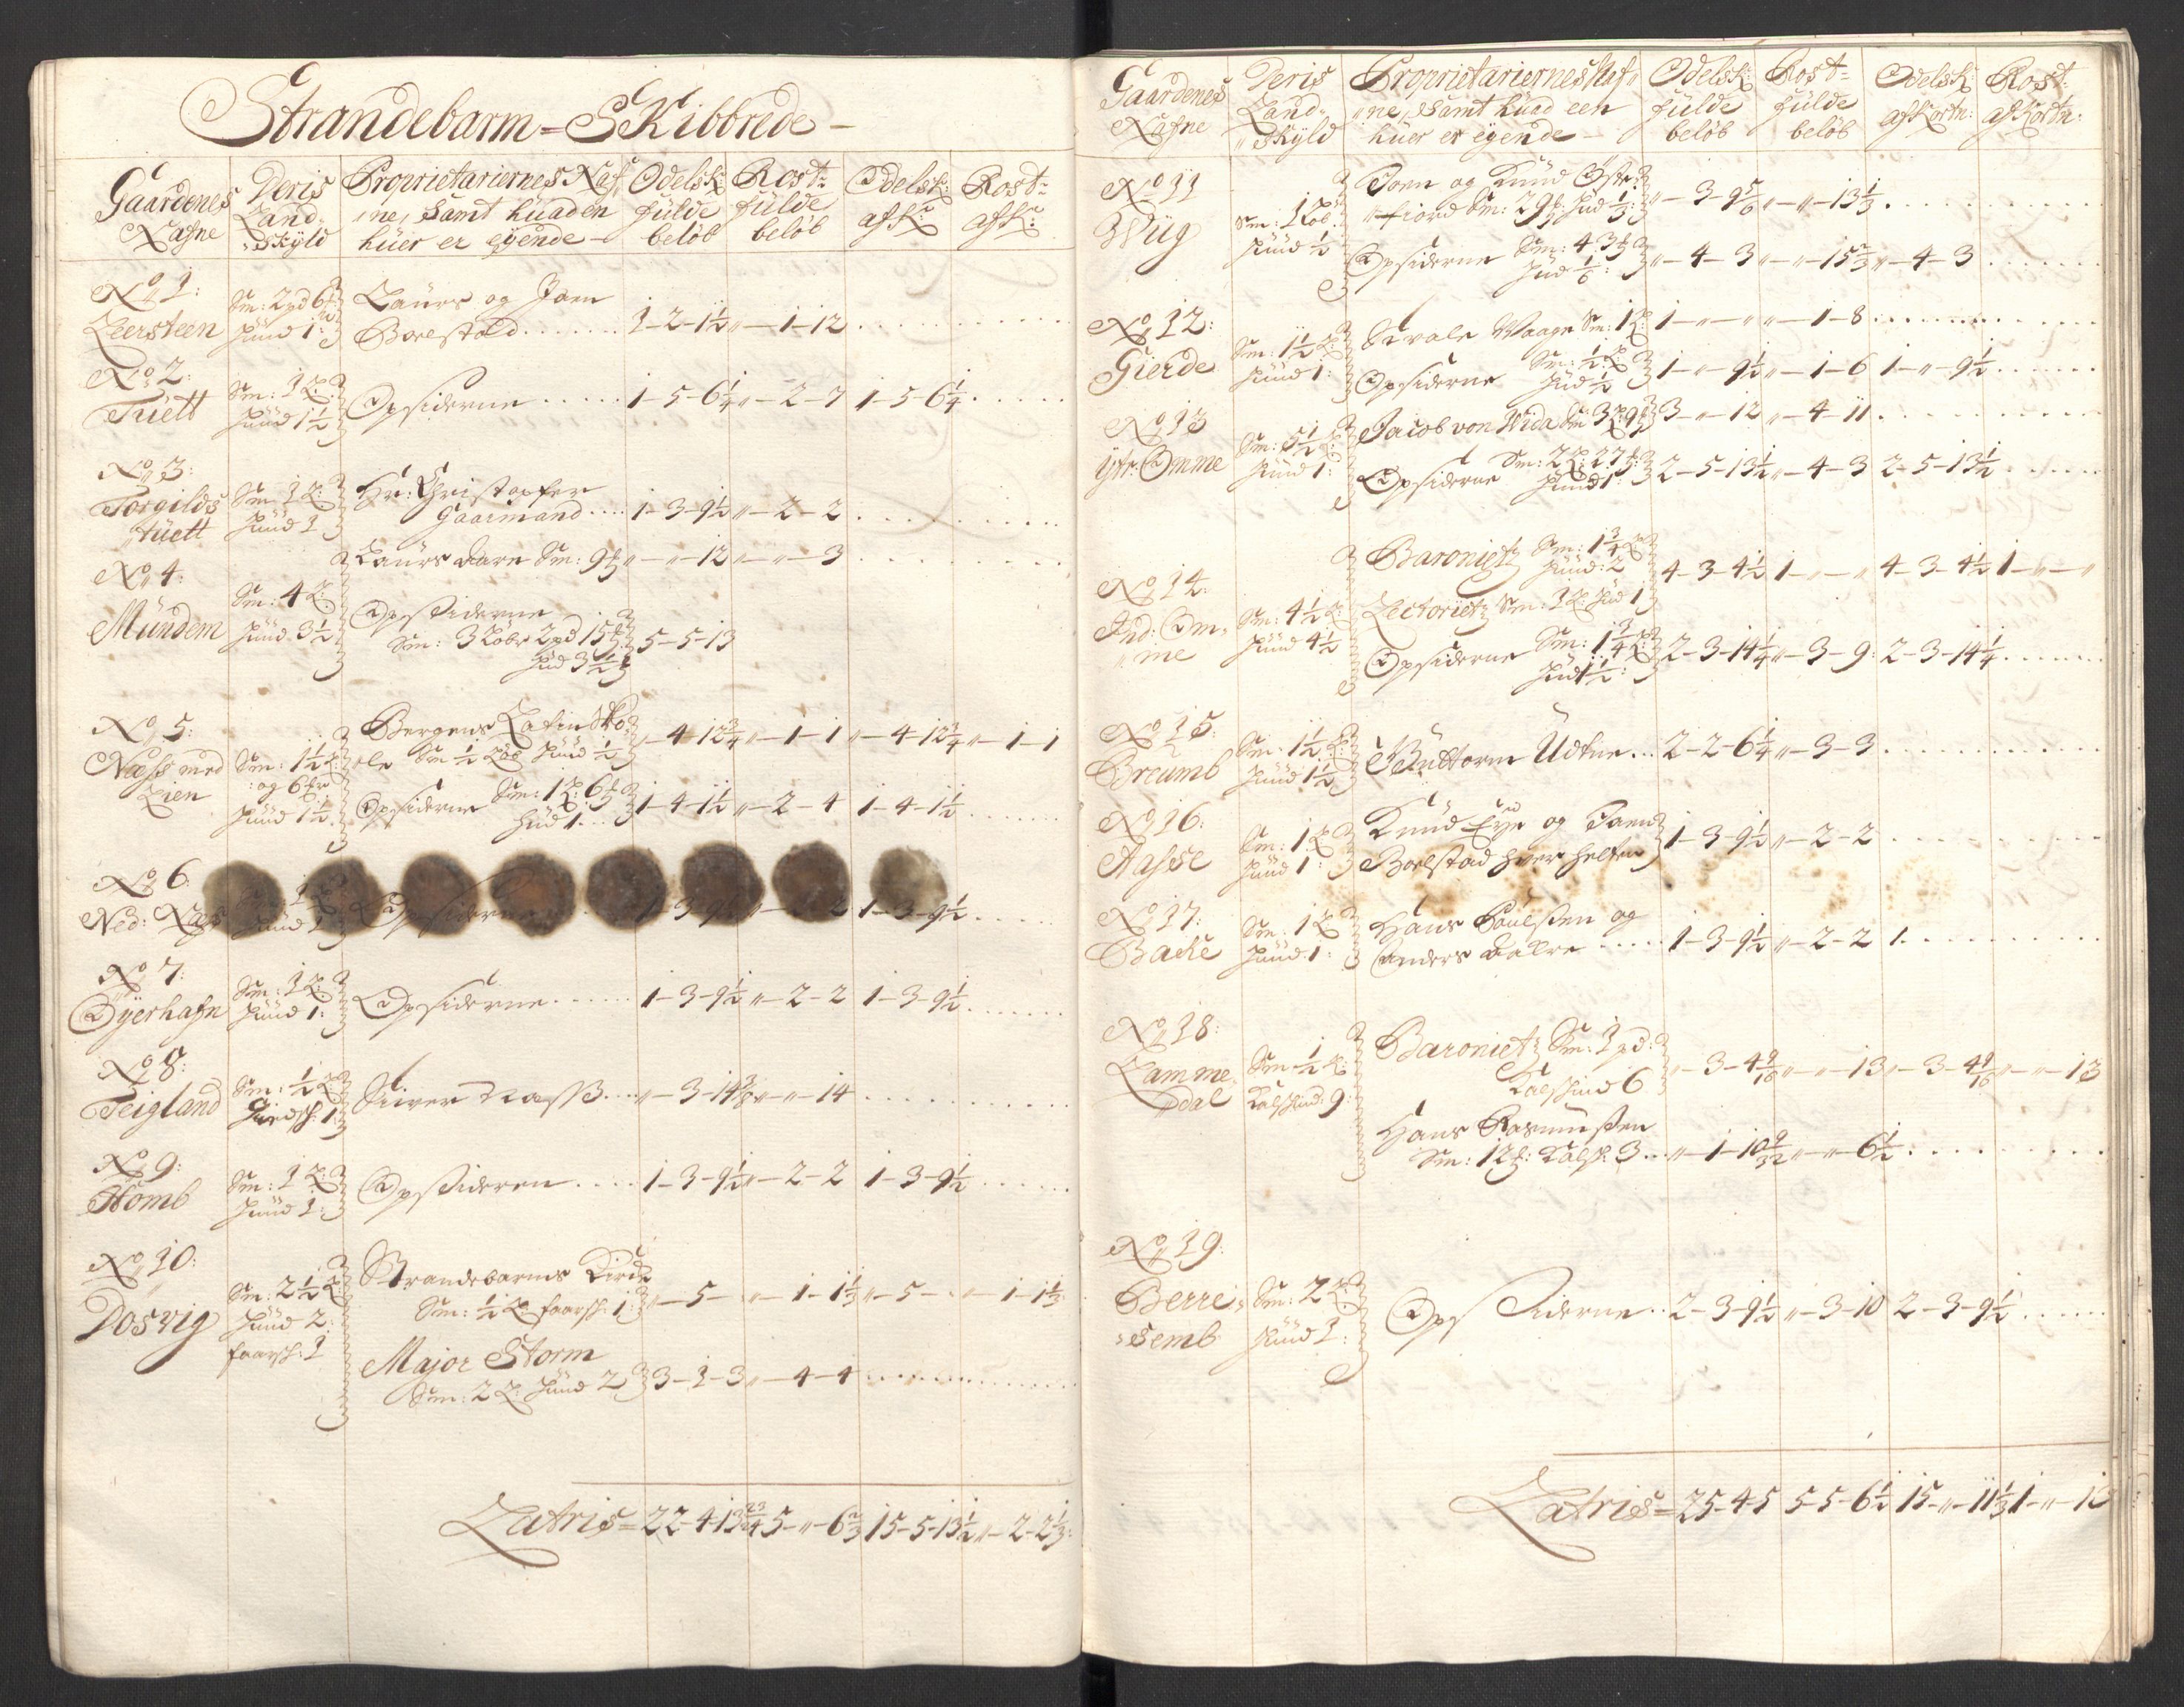 Strandebarm=SKibbrede—
Gaardenes Nafne
Deris Land„ „Skyld
Proprietariernes Naf„ „ne, samt huad en huer er eyende—
Odelsk: fulde beløb
Rost= fulde beløb
Odelsk: afk:
Rost= afk:
No 1:
Leersteen
Sm: 2 pd 6
Huud 1:
Laurs og Joen
Borlstad . . . . . 1-2-1½ „-1-12 . . . .
No 2:
Tuett
Sm: 1 L:
Huud 1½
Opsiderne . . . . . 1-5-6¼ „-2-7 1-5-6¼ . . . .
No 3:
Torgilds
„tuett
Sm 1 L:
Huud 1
Hr: Christopfer
Gaarmand . . . . 1-3-9½ „-2-2 . . . .
No 4:
Mundem
Sm: 4 L:
Huud 3½
Laurs Aare Sm: 9 „-„-12 „-„-3 . . . .
Opsiderne
Sm: 3 Løber 2 pd 15
Hud 3½ 5-5-13
No 5:
Næss med
Lien
Sm: 1½ L:
og 6
Huud 1½
Bergens Latin Sko„
ole Sm ½ Løb Huud ½ „-4-12¾ „-1-1 „-4-12¾ „-1-1
Opsiderne Sm: 1 L: 6
Hud 1 . . . 1-4-1½ „-2-4 1-4-1½ . . . .
No 6:
Ned: Næss
Huud 1
Opsiderne 1-3-9½ „- -2 1-3-9½ . . . .
No 7:
Øyerhafn
Sm: 1 L:
Huud 1:
Opsiderne . . . . . 1-3-9½ „-2-2 1-3-9½ . . . .
No 8:
Teigland
Sm: ½ L
Huedsk: 1:
Siver Nass . . . „-3-14⅜ „-„-14 . . . .
No 9:
Tomb
Sm: 1 L:
Huud 1:
Opsideren . . . . 1-3-9½ „-2-2 1-3-9½ . . . .
No 10:
Dosvig
Sm: 2½ L:
Huud 2:
faarsk: 1
Strandebarms Kirke
Sm: ½ L: faarsk: 1: „-5- „-1-1⅓ „-5- „-1-1⅓
Major Storm
Sm: 2 L: Huud 2 3-1-3 „-4-4 . . . .
Latris= 22-4-13 23/24 5-„-6⅔ 15-5-13½ „-2-2⅓:
Gaardenes Nafne
Deris Land„ „Skyld
Proprietariernes Naf„ „ne, samt huad een huer er eyende—
Odelsk: fulde beløb
Rost= fulde beløb
Odelsk: afkortn:
Rost: afkortn:
No 11
Wiig
Sm: 1 Løb
Huud ½
Joen og Knud Østr„
„fiord Sm: 29 Hud ⅓: „-3-9⅚ „-„-13⅓ . . . .
Opsiderne Sm: 43
Hud ⅙: „-4-3 „-„-15⅔ „-4-3 . . . .
No 12:
Gierde
Sm: 1½ L:
Huud 1:
Sivale Waage Sm: 1 L: 1-„-„ „-1-8 . . . .
Opsiderne Sm: ½ L:
Hud ½ 1-„-9½ „-1-6 1-„-9½ . . . .
No 13
Yttr: Omme
Sm: 5½ L:
Huud 1:
Jacob von Wida Sm 3 L: 9 3-„-12 „-4-11 . . . .
Opsiderne Sm: 2 L: 27
Huud 1: 2-5-13½ „-4-3 2-5-13½ . . . .
No 14:
Ind: Om„
„me
Sm: 4½ L:
Huud 4½
Baroniet Sm: 1¾ L:
Huud: 2 4-3-4½ 1-„-„ 4-3-4½ 1-„-„
Lectoriet Sm: 1 L: Hud 1
Opsiderne Sm: 1¾ L:
Hud 1½: 2-3-14¼ „-3-9: 2-3-14¼ . . . .
No 15:
Breumb
Sm: 1½ L:
Huud 1½
Guttorm Udtne . . . 2-2-6¼ „-3-3 . . . .
No 16:
Aasse
Sm: 1 L
Huud 1:
Knud Eye og Joen
Borlstad huer helften 1-3-9½ „-2-2 . . . .
No 17:
Backe
Sm: 1 L
Huud 1:
Hans Poulsen og
Anders Aalre . . . . . 1-3-9½ „-2-2 1. . . .
No 18:
Lamme„
„dal
Sm ½ L:
Kalfskind: 9:
Baroniet Sm: 1 pd:
Kalfskind 6 „-3-4 9/16 „-„-13 „-3-4 9/16 „-„-13
Hans Rasmussen
Sm: 12 Kalfsk: 3 . . „-1-10 9/32 „-„-6½ . . . .
No 19:
Berre„
„semb
Sm: 2 L:
Huud 1:
Opsiderne . . 2-3-9½ „-3-10 2-3-9½ . . . .
Latris= 25-4-5 5-5-6½ 15-„-11⅓ 1-„-13